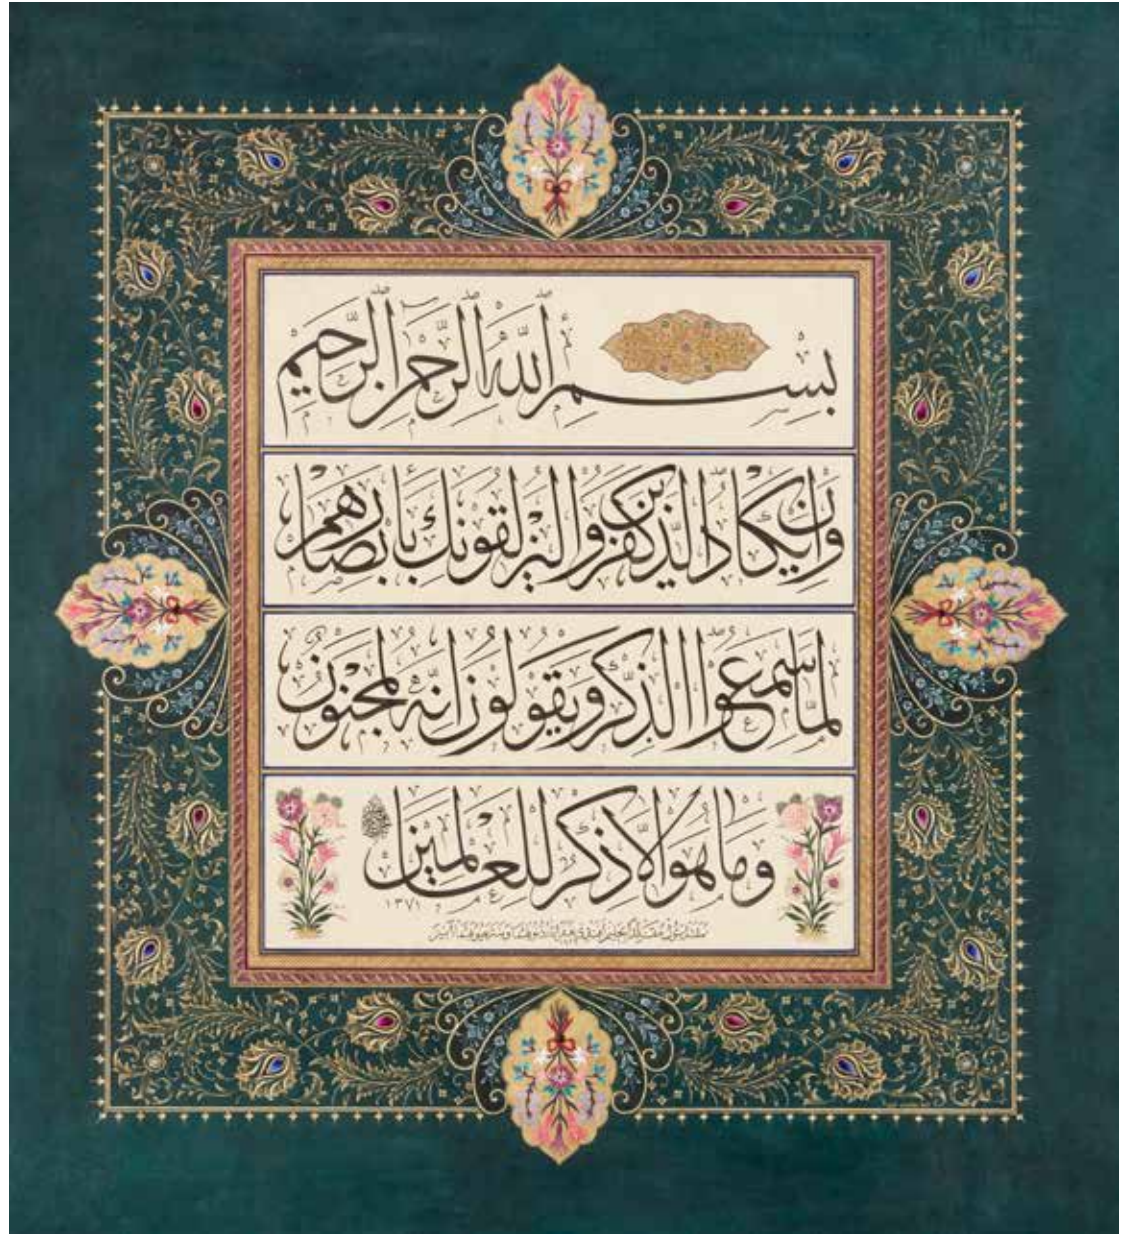 بِسْمِ اللّٰهِ الرَّحْمٰنِ الرَّحِيمِ
وَاِنْ يَكَادُ الَّذِينَ كَفَرُوا لَيُزْلِقُونَكَ بِاَبْصَارِهِمْ
لَمَّا سَمِعُوا الذِّكْرَ وَيَقُولُونَ اِنَّهُ لَمَجْنُونٌ
وَمَا هُوَ اِلَّا ذِكْرٌ لِلْعَالَمِينَ
١٣٧١